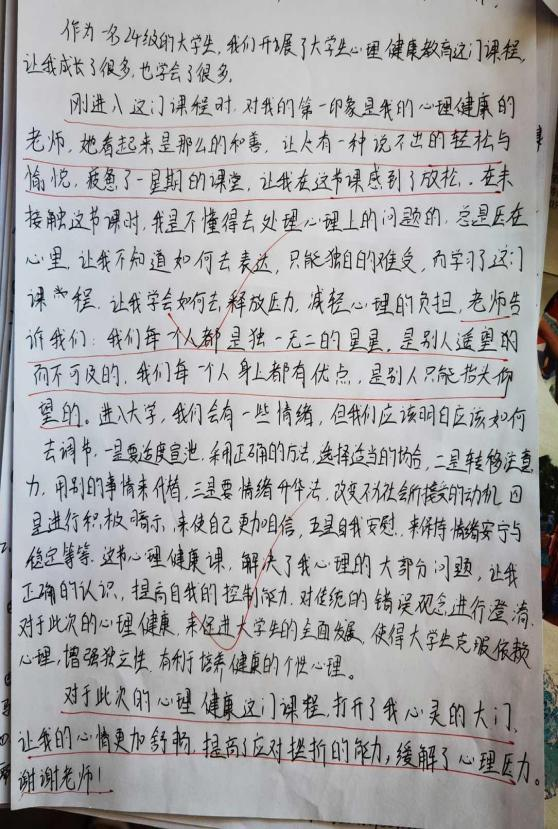 作为一名24级的大学生，我们开展了大学生心理健康教育这门课程，
让我成长了很多，也学会了很多。
刚进入这门课程时，对我的第一印象是我的心理健康的
老师，她看起来是那么的和善，让人有一种说不出的轻松与
愉悦，疲惫了一星期的课堂，让我在这节课感到了放松。在未
接触这节课时，我是不懂得去处理心理上的问题的，总是压在
心里，让我不知道如何去表达，只能独自的难受，而学习了这门
课程，让我学会如何去释放压力，减轻心理的负担，老师告
诉我们：我们每个人都是独一无二的星星，是别人遥望的
而不可及的，我们每一个人身上都有优点，是别人只能抬头仰
望的。进入大学，我们会有一些情绪，但我们应该明白应该如何
去调节，一是要适度宣泄，采用正确的方法，选择适当的场合，二是转移注意
力，用别的事情来代替，三是要情绪升华法，改变不为社会所接受的动机，四
是进行积极暗示，来使自己更加自信，五是自我安慰，来保持情绪安宁与
稳定等等，这节心理健康课，解决了我心理的大部分问题，让我
正确的认识，提高自我的控制能力，对传统的错误观念进行澄清，
对于此次的心理健康，来促进大学生的全面发展，使得大学生克服依赖
心理，增强独立性，有利于培养健康的个性心理。
对于此次的心理健康这门课程，打开了我心灵的大门，
让我的心情更加舒畅，提高了应对挫折的能力，缓解了心理压力。
谢谢老师！